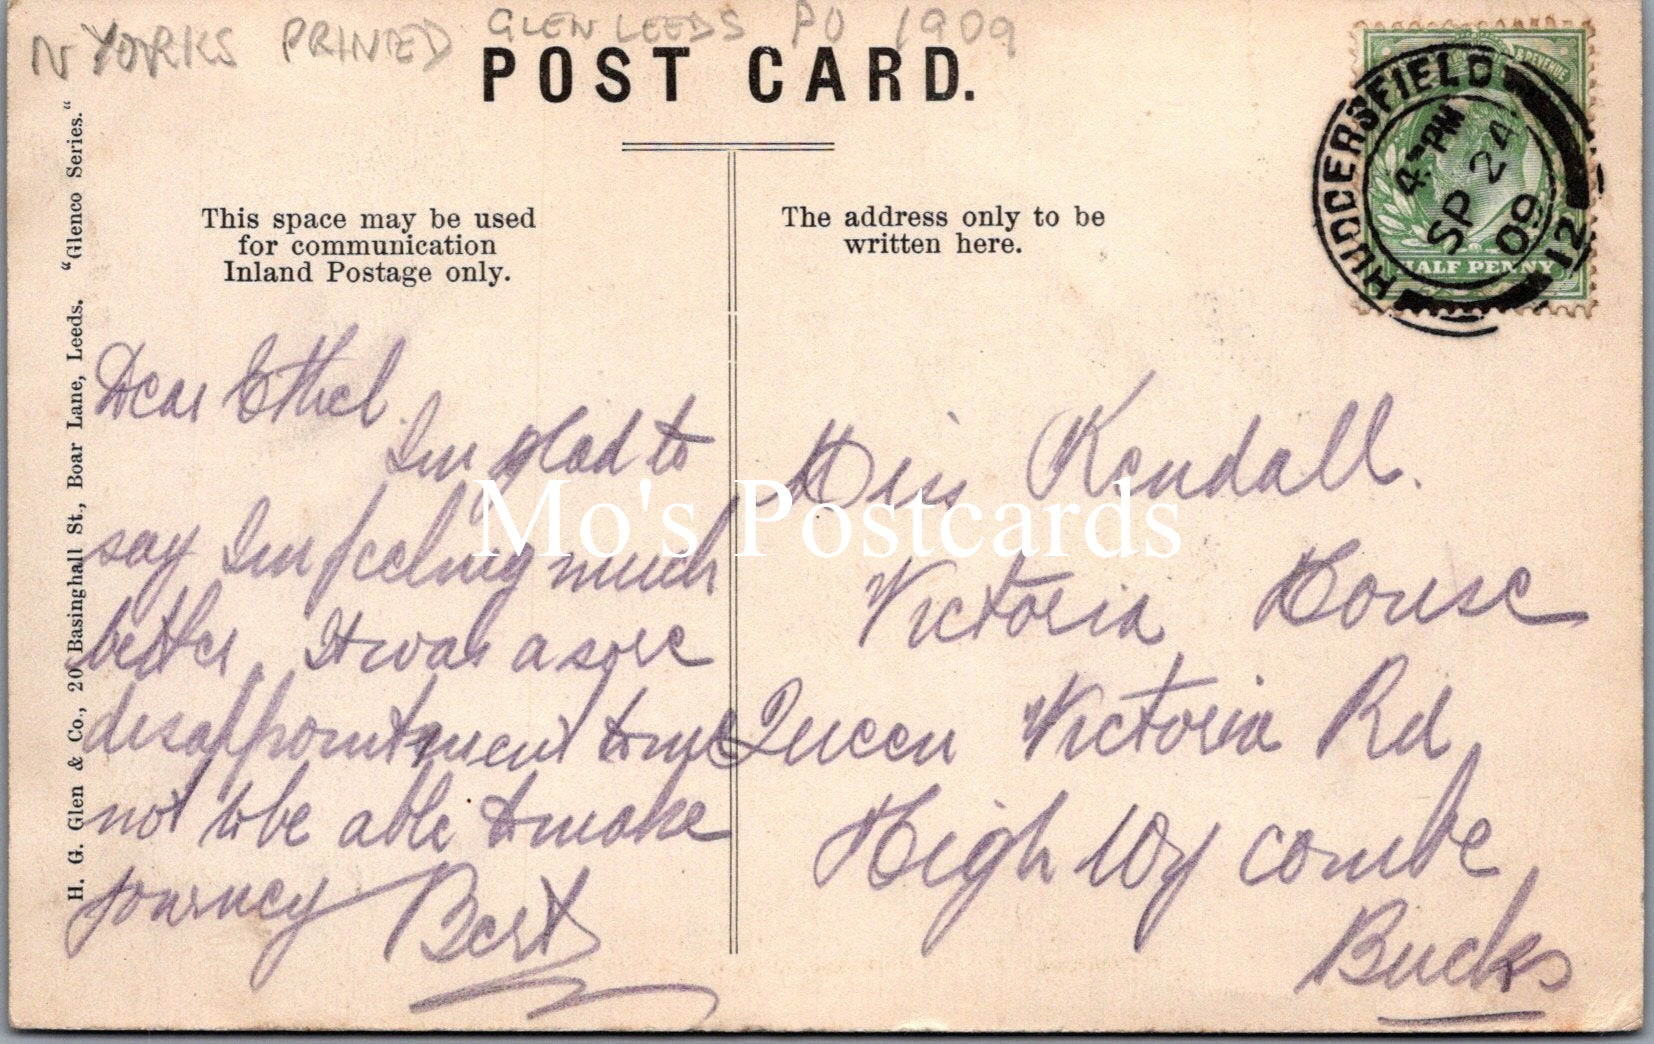 N YORKS PRINTED GLEN LEEDS PU 1909
POST CARD.
This space may be used
for communication
Inland Postage only.
The address only to be
written here.
HUDDERSFIELD
4. PM
SP 24
09
12
& REVENUE
HALF PENNY
H. G. Glen & Co., 20 Basinghall St., Boar Lane, Leeds. "Glenco Series."
Dear Ethel
Im glad to
say Im feeling much
better. It was a sore
disappointment to me
not to be able to make
journey Bert
Miss Kendall.
Victoria House
Queen Victoria Rd
High Wycombe
Bucks
Mo's Postcards